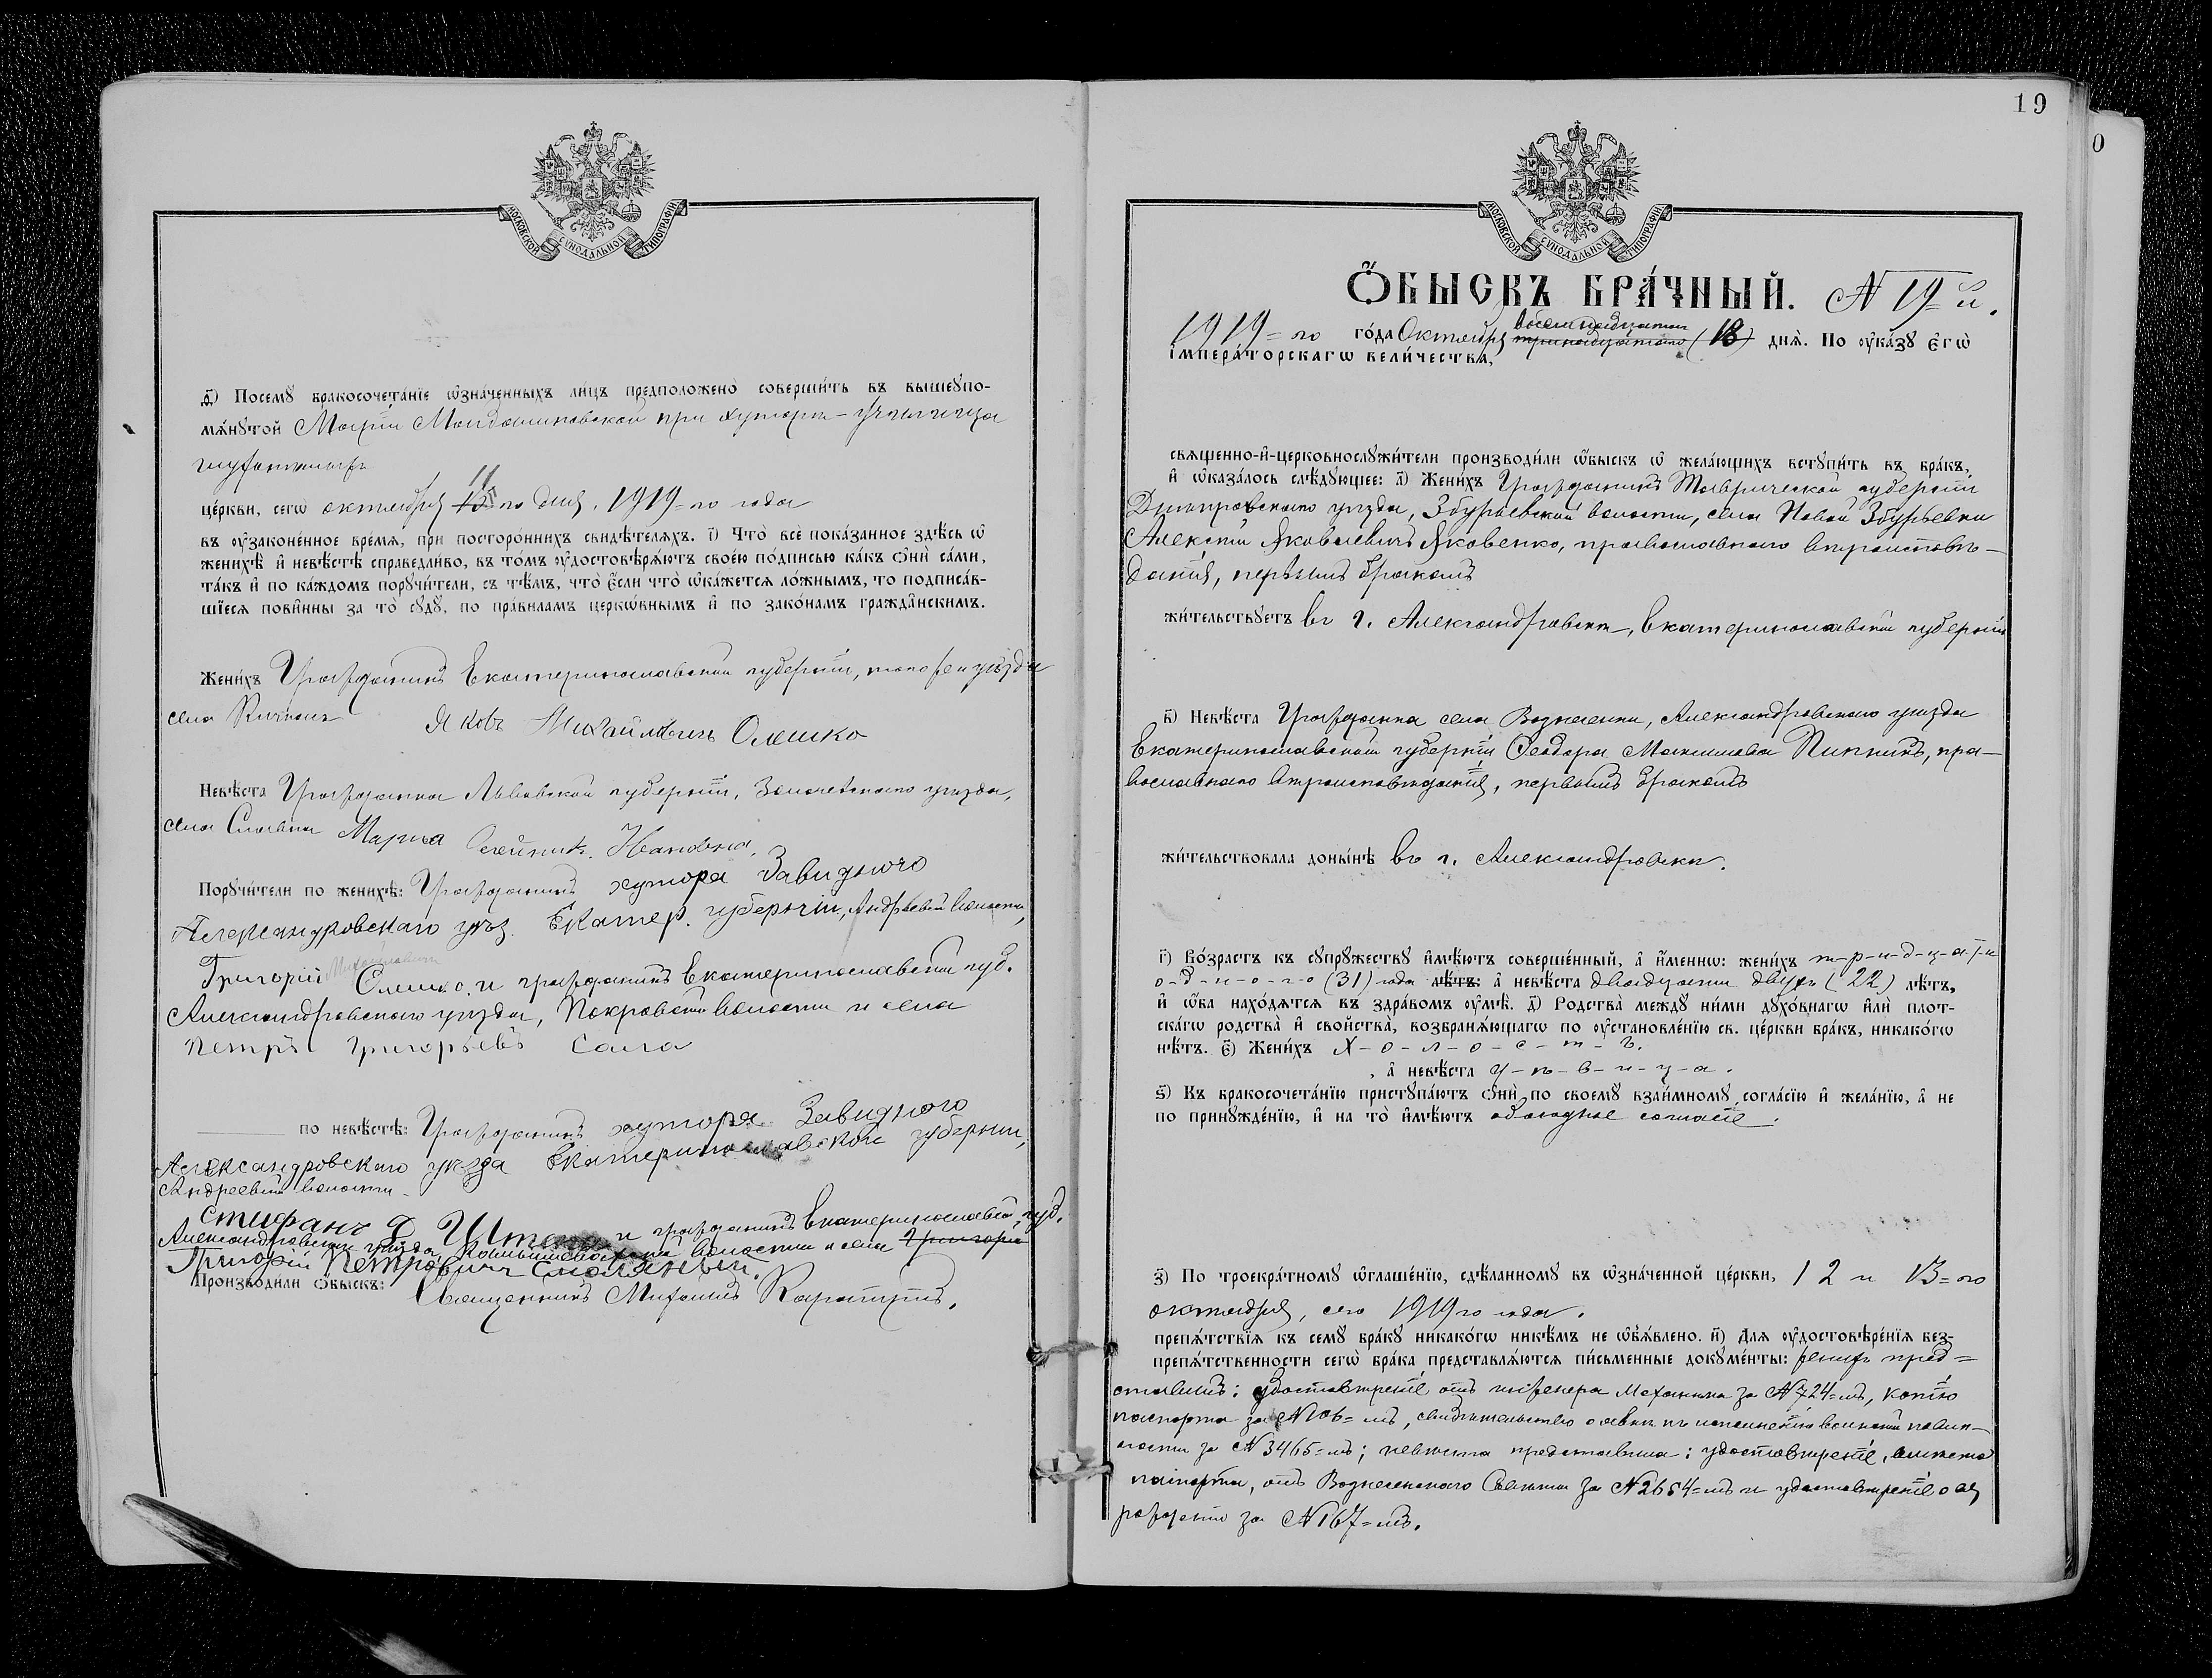 МОСКОВСКОЙ СѴНОДАЛЬНОЙ ТИПОГРАФІИ
д҃) Посемꙋ бракосочета́нїе ѡ҆зна́ченныхъ ли́цъ предположено̀ соверши́ть въ вышеꙋпо-
мѧ́нꙋтой Марiи при хуторѣ-училища
це́ркви, сегѡ̀ октября 11 го дня, 1919-го года
въ ᲂу҆зако́ненное вре́мѧ, при посторо́ннихъ свидѣ́телѧхъ. і҃) Что̀ всѐ пока́занное здѣ́сь ѡ҆
женихѣ̀ и҆ невѣ́стѣ справедли́во, въ то́мъ ᲂу҆достовѣрѧ́ютъ свое́ю по́дписью ка́къ ѻ҆нѝ са́ми,
та́къ и҆ по ка́ждомъ порꙋчи́тели, съ тѣ́мъ, что̀ є҆́сли что̀ ѡ҆ка́жетсѧ ло́жнымъ, то подписа́в-
шїесѧ пови́нны за то̀ сꙋдꙋ̀, по пра́виламъ церкѡ́внымъ и҆ по зако́намъ гражда̂нскимъ.
Жени́хъ Гражданинъ Екатеринославской губернiи, того же уѣзда
села Яковъ Михайловичъ Олешко
Невѣ́ста Гражданка Львовской губернiи, Золочевскаго уѣзда,
села Славна Марыа Олейник. Ивановна.
Порꙋчи́тели по женихѣ̀: Гражданинъ хутора Завидного
Александровскаго уѣз. Екатер. губернiи, Андреевской волости,
Григорiй Михайловичъ Олешко и гражданинъ Екатеринославской губ.
Александровскаго уѣзда, Покровской волости и села
Петръ Григорьевъ Сала
по невѣ́стѣ: Гражданинъ хутора Завидного
Александровскаго уезда Екатеринославской губернии,
Андреевской волости
Стифанъ и гражданинъ Екатеринославской губ.
Александровскаго уѣзда, волости и села Григорiй
Григорiй Петровичъ
Производи́ли ѻ҆́быскъ: Священникъ Михаилъ
19
МОСКОВСКОЙ СѴНОДАЛЬНОЙ ТИПОГРАФІИ
Ѻ҆́БЫСКЪ БРА́ЧНЫЙ. N 19-й.
1919-го го́да Октября восемнадцатаго тринадцатаго (18) днѧ̀. По ᲂу҆ка́зꙋ є҆гѡ̀
і҆мпера́торскагѡ вели́чества,
свѧще́нно-и҆-церковнослꙋжи́тели производи́ли ѡ҆́быскъ ѡ҆ жела́ющихъ встꙋпи́ть въ бра́къ,
и҆ ѡ҆каза́лось слѣ́дꙋющее: а҃) Жени́хъ Гражданинъ Таврической губернiи
Днѣпровскаго уѣзда, Збурьевской волости, села Новой Збурьевки
Алексѣй Яковлевичъ Яковенко, православнаго вѣроисповѣ-
данiя, первымъ бракомъ
жи́тельствꙋетъ въ г. Александровскѣ, Екатеринославской губернiи
в҃) Невѣ́ста Гражданка села Вознесенки, Александровскаго уѣзда
Екатеринославской губернiи Ѳеодора Максимова Пипникъ, пра-
вославнаго вѣроисповѣданiя, первымъ бракомъ
жи́тельствовала доны́нѣ въ г. Александровскѣ.
г҃) Во́зрастъ къ сꙋпрꙋ́жествꙋ и҆мѣ́ютъ соверше́нный, а҆ и҆́меннѡ: жени́хъ т-р-и-д-ц-а-т-и
о-д-н-о-г-о (31) года лѣ́тъ: а҆ невѣ́ста двадцати двухъ (22) лѣ́тъ,
и҆ ѻ҆́ба нахо́дѧтсѧ въ здра́вомъ ᲂу҆мѣ̀. д҃) Родства̀ междꙋ̀ ни́ми дꙋхо́внагѡ и҆лѝ пло́т-
скагѡ родства̀ и҆ сво́йства, возбранѧ́ющагѡ по ᲂу҆становле́нїю св. це́ркви бра́къ, никако́гѡ
нѣ́тъ. є҃) Жени́хъ Х-о-л-о-с-т-ъ.
, а҆ невѣ́ста д-ѣ-в-и-ц-а.
ѕ҃) Къ бракосочета́нїю пристꙋпа́ютъ ѻ҆нѝ по своемꙋ̀ взаи́мномꙋ согла́сїю и҆ жела́нїю, а҆ не
по принꙋжде́нїю, и҆ на то̀ и҆мѣ́ютъ обоюдное согласiе.
з҃) По троекра́тномꙋ ѡ҆глаше́нїю, сдѣ́ланномꙋ въ ѡ҆зна́ченной це́ркви, 12 и 13-го
октября, сего 1919 го года.
препѧ́тствїѧ къ семꙋ̀ бра́кꙋ никако́гѡ никѣ́мъ не ѡ҆бъѧ́влено. и҃) Длѧ ᲂу҆достовѣре́нїѧ без-
препѧ́тственности сегѡ̀ бра́ка представлѧ́ютсѧ пи́сьменные докꙋме́нты: женихъ пред=
ставилъ: удостовѣренiе отъ инженера Механика за N 724=мъ, копiю
паспорта за N 106=мъ, свидѣтельство о явкѣ къ исполненiю воинской повин-
ности за N 3465=мъ; невѣста представила: удостовѣренiе, вмѣсто
паспорта, отъ Вознесенскаго за N 2654=мъ и удостовѣренiе о ея
рожденiи за N 167=мъ.